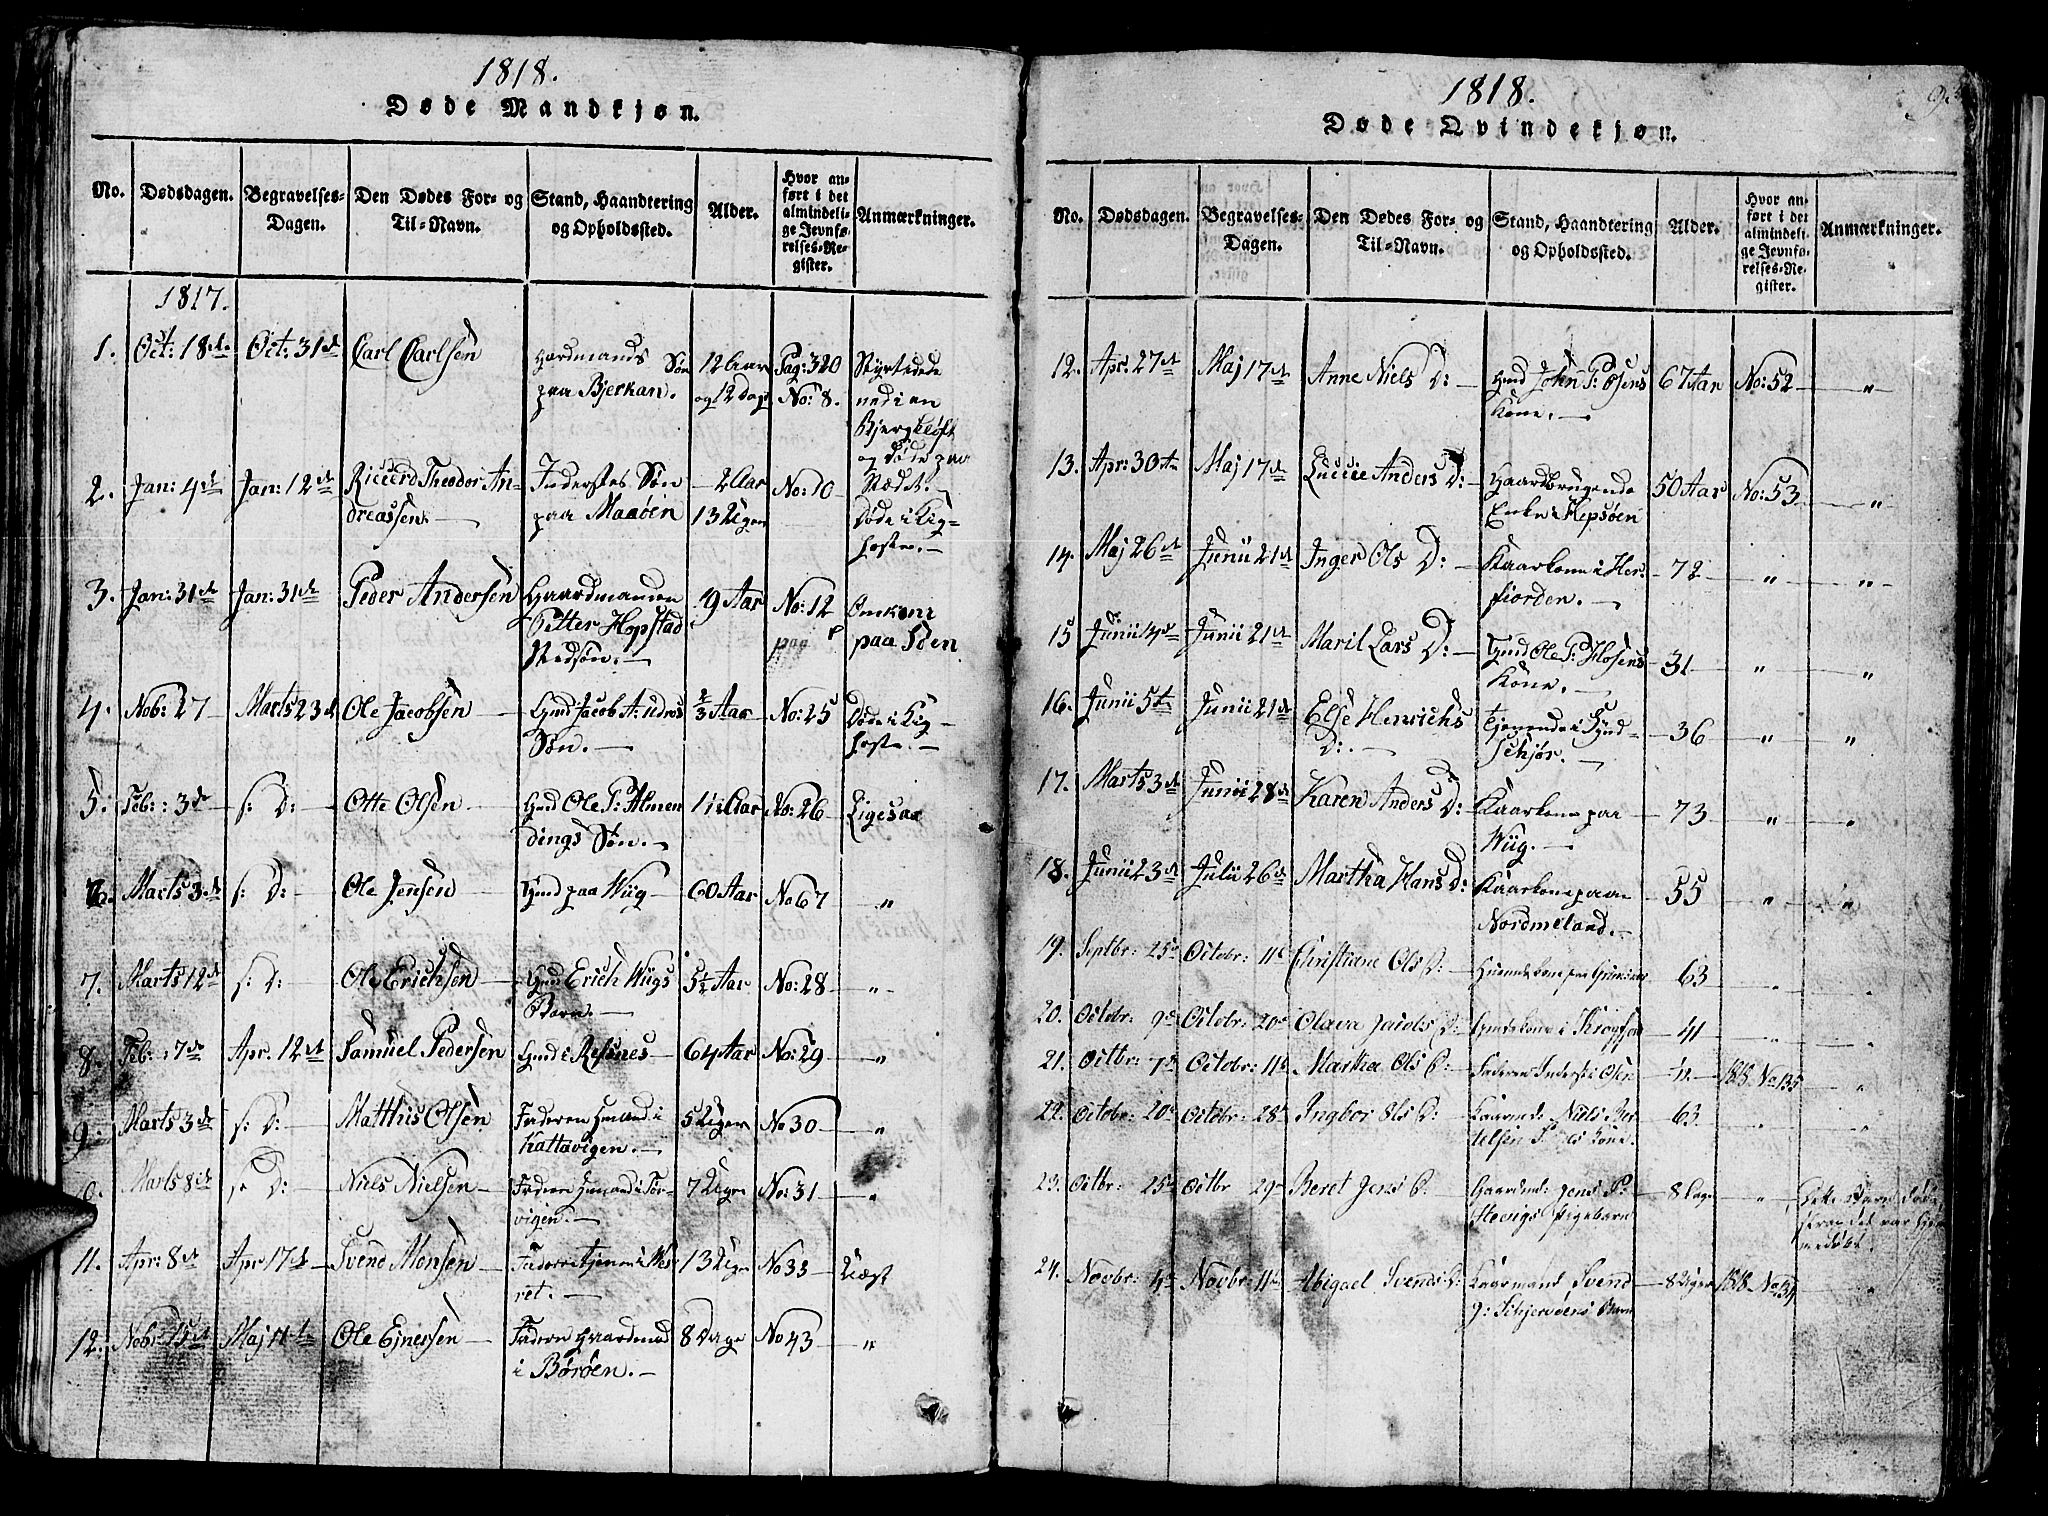 1818.
Døde Mandkjøn.
No. Dødsdagen. Begravelses-Dagen. Den Dødes For- og Til-Navn. Stand, Haandtering og Opholdssted. Alder. Hvor anført i det almindelige Jevnførelses-Register. Anmærkninger.
1817.
1. Oct: 18de Oct: 31te Carl Carlsen
paa Bjerkan. Søn 12 Aar og 12 Dage Pag: 320 No: 8. Styrtede ned i en Bjergkløft og døde paa Stædet.
2. Jan: 4de Jan: 12te Riccerd Theodor Andreassen Inderstes Søn paa Maaøen 2 Aar 13 Uger No: 10 Døde i Kighoste.
3. Jan: 31te Jan: 31te Peder Andersen Gaardmanden Petter Hopstad Stedsøn. 19 Aar No: 12 Omkom paa Søen
4. Nob: 27 Marts 23de Ole Jacobsen Gmd Jacob Andres Søn. 2/3 Aar No: 25 Døde i Kighoste.
5. Feb: 3de s: D: Otte Olsen Gmd Ole P: Almendings Søn. 1½ Aar No: 26 Ligesaa
6. Marts 3de s: D: Ole Jensen Gmd paa Wiig 60 Aar No 67 "
7. Marts 12te s: D: Ole Erichsen Gmd Erich Wiigs Barn. 5½ Aar No: 28 "
8. Feb: 17de Apr. 12te Samuel Pedersen Gmd i Ressnes 64 Aar No: 29 "
9. Marts 3de s: D: Matthis Olsen Faderen Hmand i Kattavigen. 5 Uger No 30 "
Marts 8de s: D: Niels Nielsen Faderen Hmand i Torvigen. 7 Uger No: 31 "
11. Apr: 8de Apr 17de Svend Monsen Faderen tjener i 13 Uger No 33
12. Nobr 15de Maj 11te Ole Ejnessen Faderen Gaardmd i Børøen. 8 Dage No 43 "
1818.
Døde Qvindekjøn.
No. Dødsdagen. Begravelses-Dagen. Den Dødes For- og Til-Navn. Stand, Haandtering og Opholdssted. Alder. Hvor anført i det almindelige Jevnførelses-Register. Anmærkninger.
12. Apr: 27de Maj 17de Anne Niels D: Gmd John P: Osens Kone. 67 Aar No: 52 "
13. Apr: 30te Maj 17de Luccie Anders D: Gaardbrugende Enke i Hepsøen 50 Aar No: 53 "
14. Maj 26de Junii 21de Inger Ols D: Kaarkone i Herfiorden. 72 " "
15 Junii 4de Junii 21de Maril Lars D: Gmd Ole P: Hosens Kone. 31 " "
16. Junii 5te Junii 21de Else Henrichs D: Tjenende i Sundschjør. 36 " "
17. Marts 3de Junii 28de Karen Anders D: Kaarkone paa Wiig. 73 " "
18. Junii 23de Julii 26de Martha Hans D: Kaarkone paa Nordmeland. 55 " "
19. Septbr: 25de Octobr: 11te Christiane Ols D: 63 " "
20. Octobr: 9de Octobr: 20de Olava Jacobs D: Gmdskone i 41 " "
21. Octbr: 7de Octobr: 11te Martha Ols D: Faderen Inderst i Osen 11. 1818 No 135 "
22. Octobr: 20de Octobr: 28de Ingbor Ols D: Kaarmd: Niels Bertelsen Kone. 63 " "
23. Octbr: 25de Octbr 29de Beret Jens D: Gaardmd: Jens P: Hevigs Pigebarn 8 Dage " Dette Barn døde førend det var hjemmedøbt.
24. Novbr: 4de Novbr: 11te Abigael Svends D: Kaarmand Svend J: Schjervøens Barn 8 Uger 1818 No 134 "